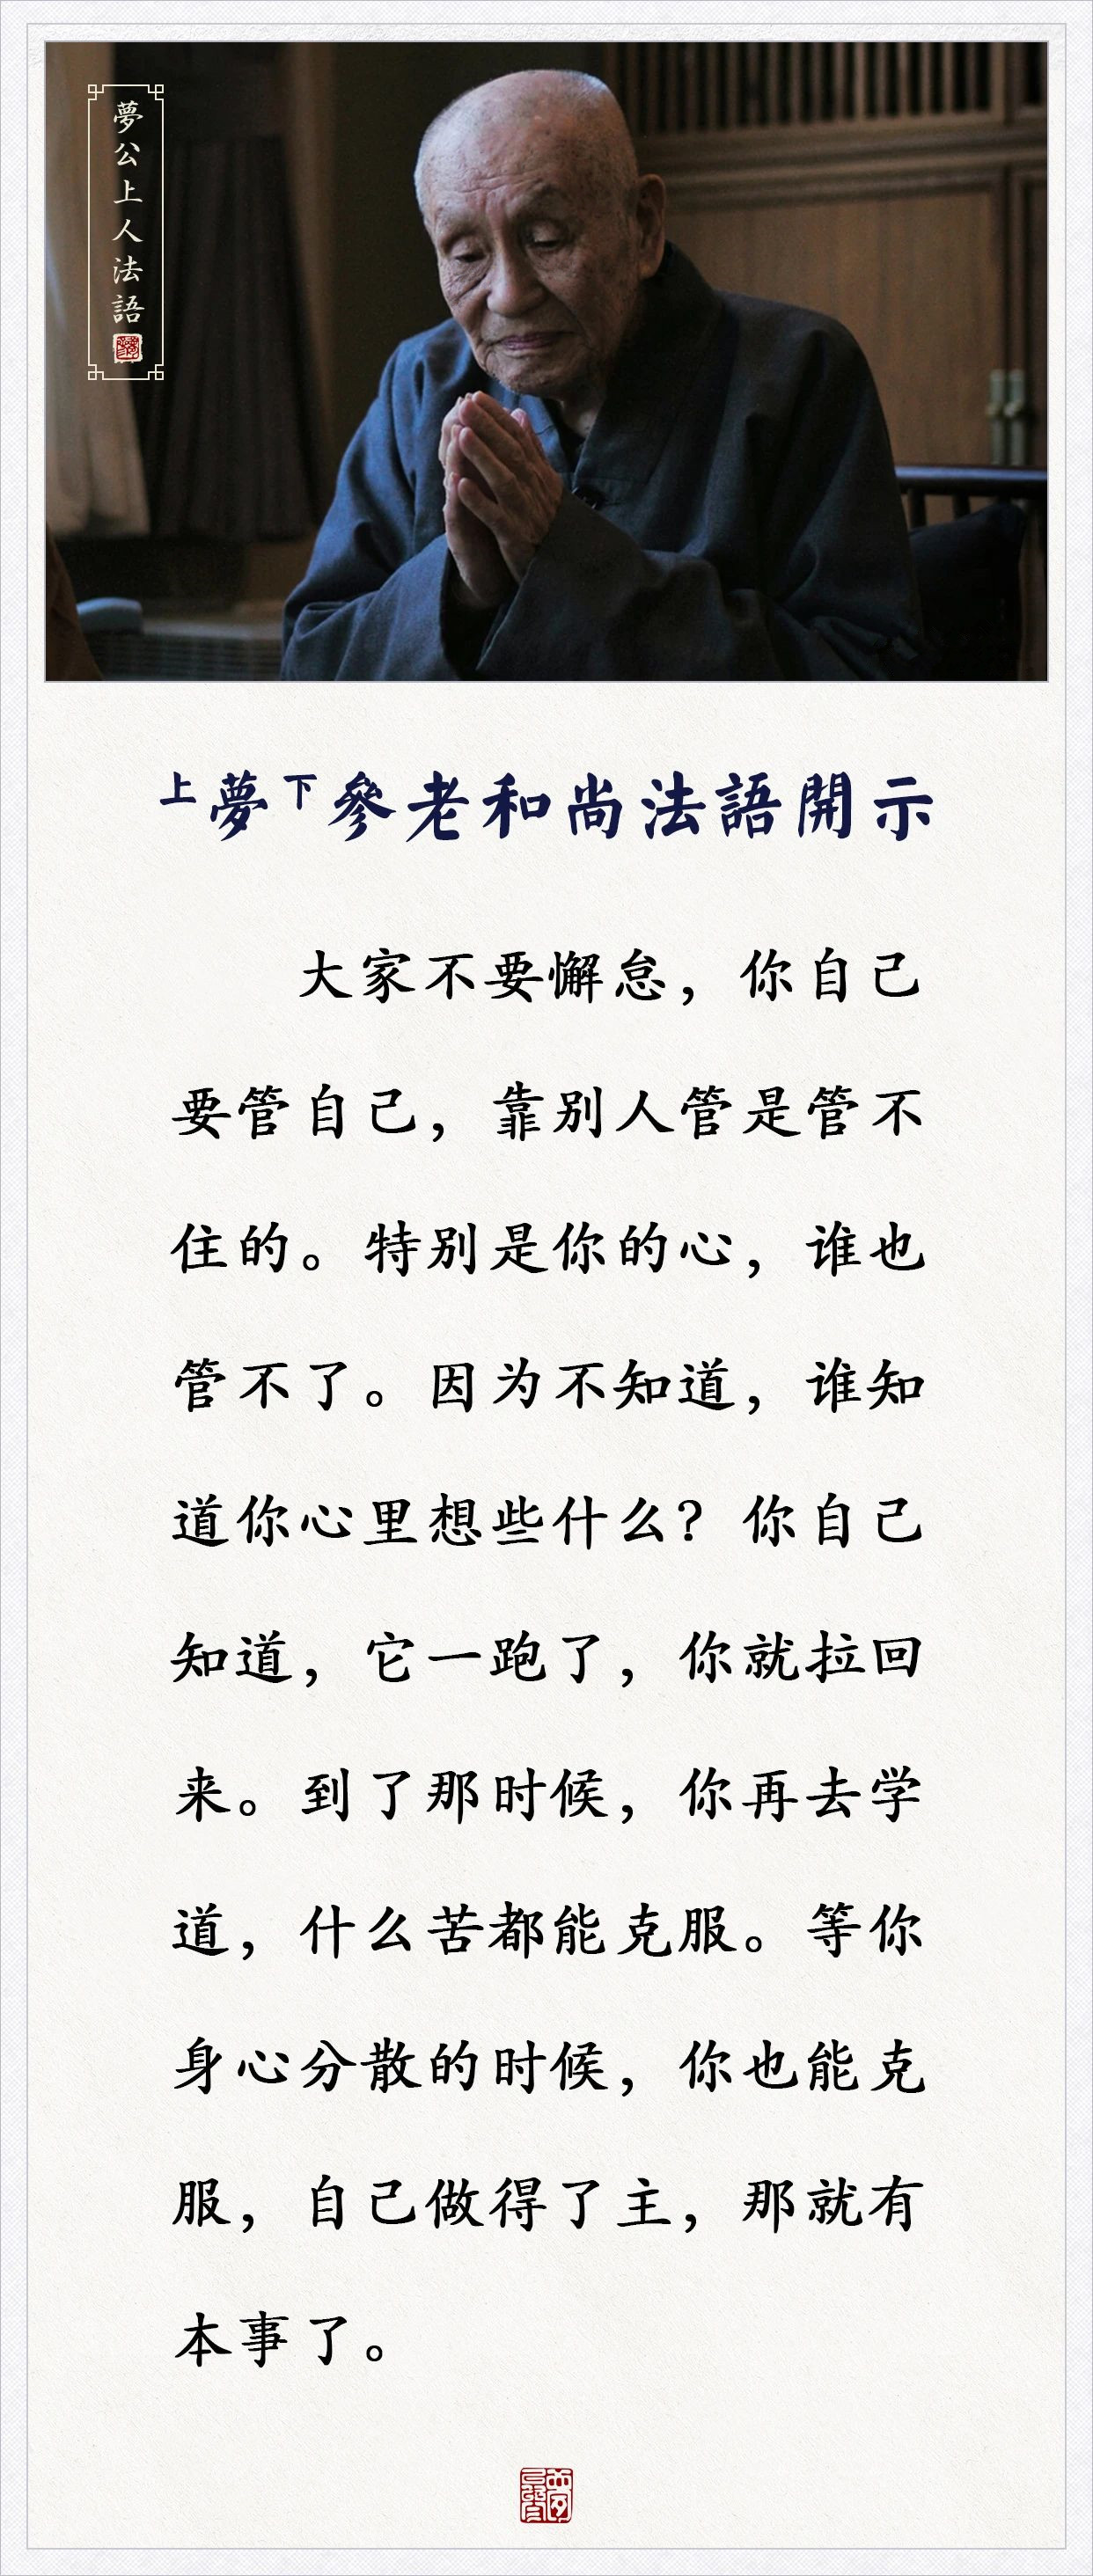 夢公上人法語
上夢下參老和尚法語開示
大家不要懈怠，你自己
要管自己，靠别人管是管不
住的。特别是你的心，谁也
管不了。因为不知道，谁知
道你心里想些什么？你自己
知道，它一跑了，你就拉回
来。到了那时候，你再去学
道，什么苦都能克服。等你
身心分散的时候，你也能克
服，自己做得了主，那就有
本事了。